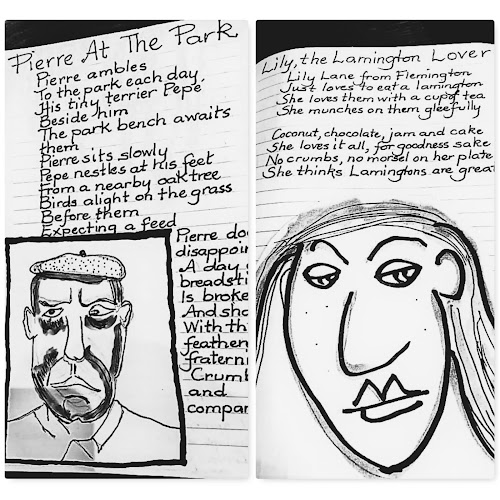 Pierre At The Park
Pierre ambles
To the park each day,
His tiny terrier Pepe
Beside him
The park bench awaits
them
Pierre sits slowly
Pepe nestles at his feet
From a nearby oak tree
Birds alight on the grass
Before them
Expecting a feed
Pierre do
disappoin
A day
breadsti
Is broke
And sha
With th
feather
fratern
Crumb
and
compan
Lily, the Lamington Lover
Lily Lane from Flemington
Just loves to eat a lamington
She loves them with a cup of tea
She munches on them gleefully
Coconut, chocolate, jam and cake
She loves it all, for goodness sake
No crumbs, no morsel on her plate
She thinks Lamingtons are great